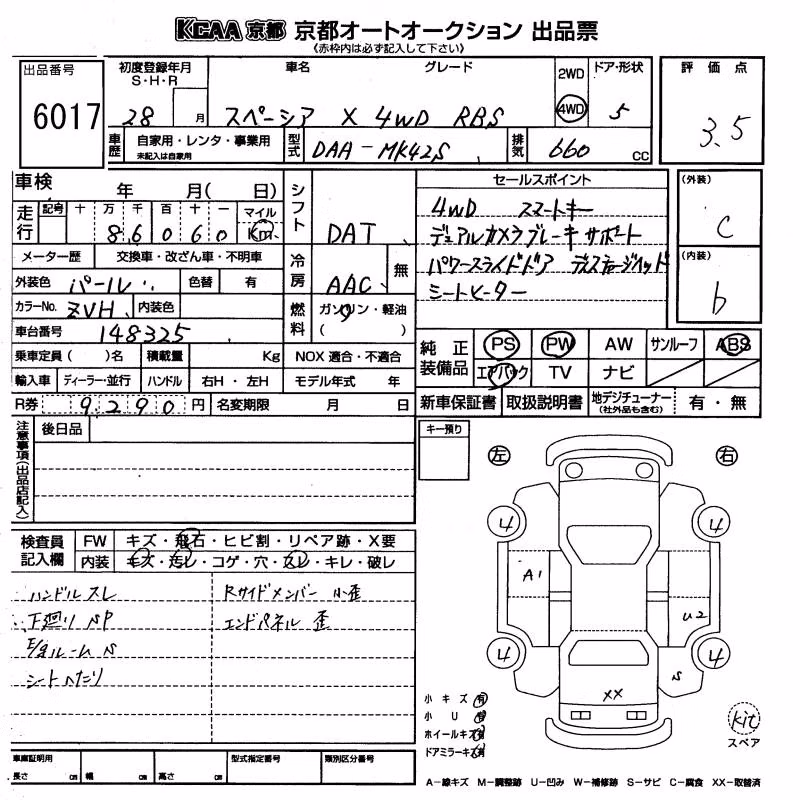 KCAA 京都 京都オートオークション 出品票
《赤枠内は必ず記入して下さい》
出品番号
6017
初度登録年月
S・H・R
28 月
車名 グレード
スペーシア X 4WD RBS
2WD
4WD
ドア・形状
5
評価点
3.5
車歴
自家用・レンタ・事業用
未記入は自家用
型式
DAA-MK42S
排気
660 CC
車検 年 月( 日)
走行
記号 十 万 千 百 十 一 マイル
8 6 0 6 0 Km
メーター歴 交換車・改ざん車・不明車
外装色 パール 色替 有
カラーNo. ZVH 内装色
車台番号 148325
乗車定員( )名 積載量 Kg
輸入車 ディーラー・並行 ハンドル 右H・左H
R券 9,290 円 名変期限 月 日
シフト
DAT
冷房
AAC 無
燃料
ガソリン・軽油
( )
NOX 適合・不適合
モデル年式 年
セールスポイント
4WD スマートキー
デュアルカメラブレーキサポート
パワースライドドア ディスチャージヘッド
シートヒーター
(外装)
C
(内装)
b
純正装備品
PS PW AW サンルーフ ABS
エアバック TV ナビ
新車保証書 取扱説明書 地デジチューナー(社外品も含む) 有・無
注意事項(出品店記入)
後日品
検査員記入欄
FW キズ・飛石・ヒビ割・リペア跡・X要
内装 キズ・汚レ・コゲ・穴・スレ・キレ・破レ
ハンドルスレ
下廻りSP
E/gルームS
シートへたり
Rサイドメンバー 小歪
エンドパネル 歪
キー預り
左 右
4 4
A1
U2
4 4
S
XX
小キズ 有
小U 有
ホイールキズ 有
ドアミラーキズ 有
kit
スペア
車庫証明用
長さ cm 幅 cm 高さ cm
型式指定番号
類別区分番号
A-線キズ M-調整跡 U-凹み W-補修跡 S-サビ C-腐食 XX-取替済